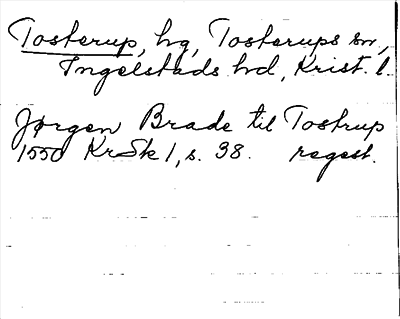 Tosterup, hg, Tosterups sn,
Ingelstads hd, Krist. l.
Jørgen Brade til Tostrup
1550 KrSk 1, s. 38. regest.